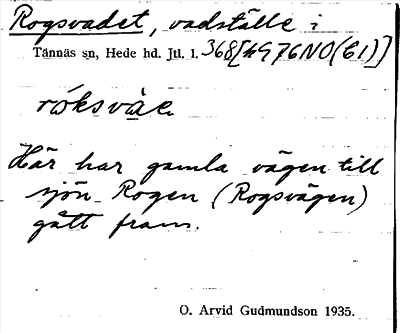 Rogsvadet, vadställe i
Tännäs sn, Hede hd. Jtl. l. 368[49 76NO(61)]
röksvàe.
Här har gamla vägen till
sjön Rogen (Rogsvägen)
gått fram.
O. Arvid Gudmundson 1935.